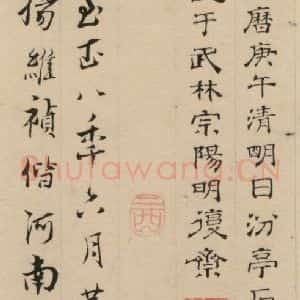 曆庚午清明日汾亭石
于武林宗陽明復齋
至正八年六月
楊維禎偕河南
Shufawang.CN